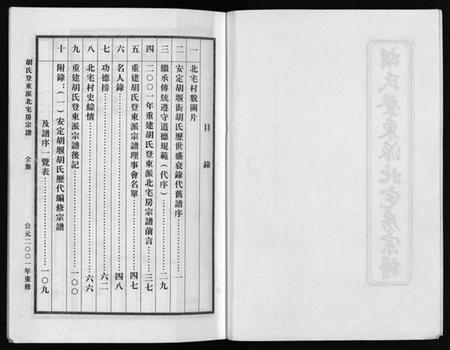 目錄
一 北宅村貌圖片
二 安定胡堰街胡氏歷世盛衰錄代舊譜序……一
三 繼承傳統遵守道德規範（代序）……二九
四 二〇〇一年重建胡氏登東派北宅房宗譜前言……三七
五 重建胡氏登東派宗譜理事會名單……四七
六 名人錄……四八
七 功德榜……六二
八 北宅村史綜情……六六
九 重建胡氏登東派宗譜後記……一〇〇
十 附錄：（一）安定胡堰胡氏歷代編修宗譜
及譜序一覽表……一〇九
胡氏登東派北宅房宗譜 全集 公元二〇〇一年重修
胡氏登東派北宅房宗譜